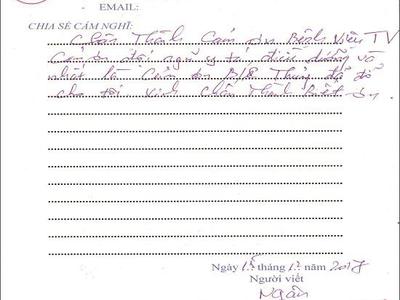 EMAIL:
CHIA SẺ CẢM NGHĨ:
Chân Thành Cám ơn Bệnh Viện TV
Cám ơn đội ngũ y tá điều dưỡng và
nhất là Cám ơn Thủy đã đỡ
cho tôi xinh Chân Thành Biết ơn.
Ngày 15 tháng 12 năm 2017
Người viết
Ngân